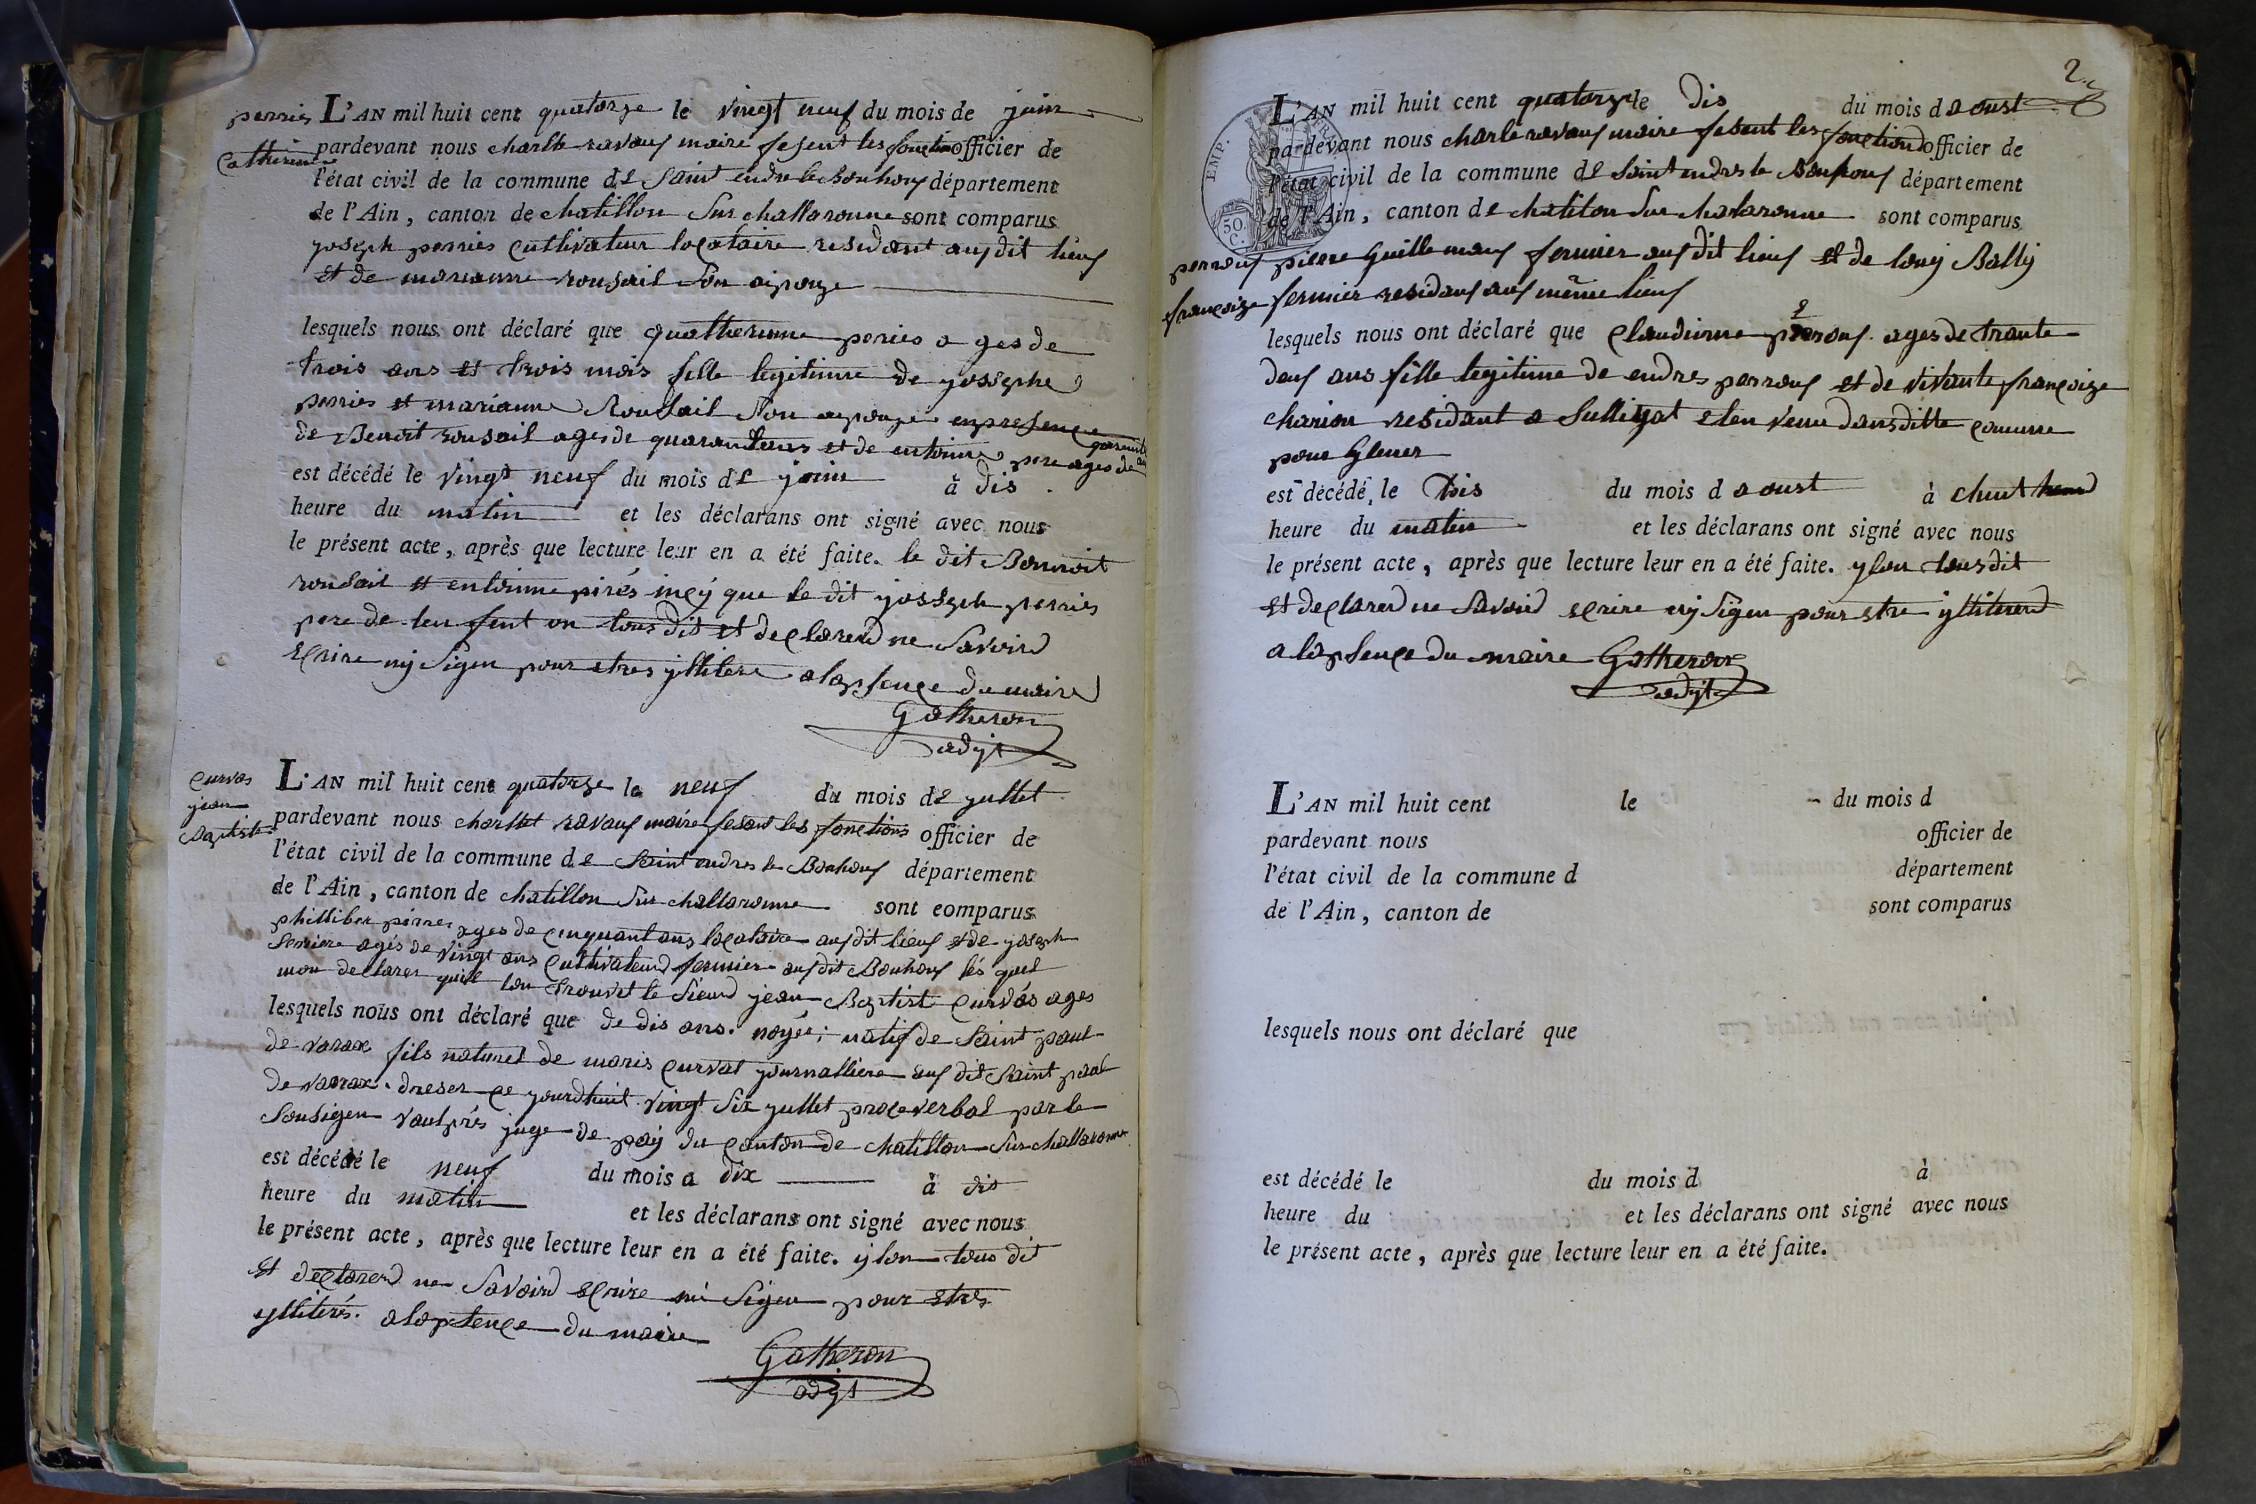 perries
Catherinne
L'AN mil huit cent quatorze le vingt neuf du mois de juin
pardevant nous charlle ravaux maire fesent les fonction officier de
l'état civil de la commune de Saint endre le Bouhoux département
de l'Ain, canton de chatillon sur challaronne sont comparus
yoseph perries cultivateur locataire residant aux dit lieux
et de marianne rousail son aipouze
lesquels nous ont déclaré que quatherinne peries a ges de
trois ans et trois mois fille legitimme de yossephe
perries et marianne Rousail son aepouze enpresence
de Benoit rousail ages de quarantans et de entoinne pere ages de
est décédé le vingt neuf du mois de juin à dis
heure du matin et les déclarans ont signé avec nous
le présent acte, après que lecture leur en a été faite. le dit Bennoit
rousail et entoinne pirés incy que le dit yosseph perries
pere de len fent on tous dis et declarerd ne Savoird
ecrire ny Signer pour etres yllitere a lapsence du maire
Gatheron
adjt
Curvas
jean
Baptiste
L'AN mil huit cent quatorze le neuf du mois de jullet
pardevant nous charllet ravaux maire fesant les fonctions officier de
l'état civil de la commune de Saint endres le Bouhoux département
de l'Ain, canton de chatillon sur challaronne sont comparus
philliber pirres ages de cinquant ans locataire aux dit lieux et de yoseph
ferriere agés de vingt ans cultivateurd fermier aux dit Bouhoux lés quel
mon declarer quill lon trouvet le Sieurd jean Baptist Curvás ages
lesquels nous ont déclaré que de dis ans. noyée; natif de Saint paul
de varax fils naturel de maris Curvat journalliere aux dit Saint paul
de varax. dreser ce yourdhuit vingt Six jullet proce verbal par le
Sousigen vauprés juge de paiy du canton de chatillon sur challaronne
est décédé le neuf du mois a dix à dis
heure du matin et les déclarans ont signé avec nous
le présent acte, après que lecture leur en a été faite. y lon tous dit
et declarerd ne Savoird ecrire ni Signer pour etres
yllitérés. a lapsence du maire
Gatheron
adjt
2
EMP.
50
C.
L'AN mil huit cent quatorze le dis du mois d aoust
pardevant nous charle ravaux maire fesent les fonctiond officier de
l'état civil de la commune de Saint endres le Bouhoux département
de l'Ain, canton de chatilon sur chalaronne sont comparus
perroux
françoize
pierre Guillemaux fermier aux dit lieux et de louy Bally
fermier residant aux même lieux
lesquels nous ont déclaré que Claudinne perroux ages de trante
deux ans fille legitime de endres perroux et de vivante françoize
charion residant a Sulligat eten venu dans ditte comune
pour glener
est décédé le Dis du mois d aoust à
heure du matin et les déclarans ont signé avec nous
le présent acte, après que lecture leur en a été faite. y lon tous dit
et declarerd ne Savoird ecrire ny Signer pour etre yllitererd
a lapsence du maire Gatheron
adjt
L'AN mil huit cent le du mois d
pardevant nous officier de
l'état civil de la commune d département
de l'Ain, canton de sont comparus
lesquels nous ont déclaré que
est décédé le du mois d à
heure du et les déclarans ont signé avec nous
le présent acte, après que lecture leur en a été faite.